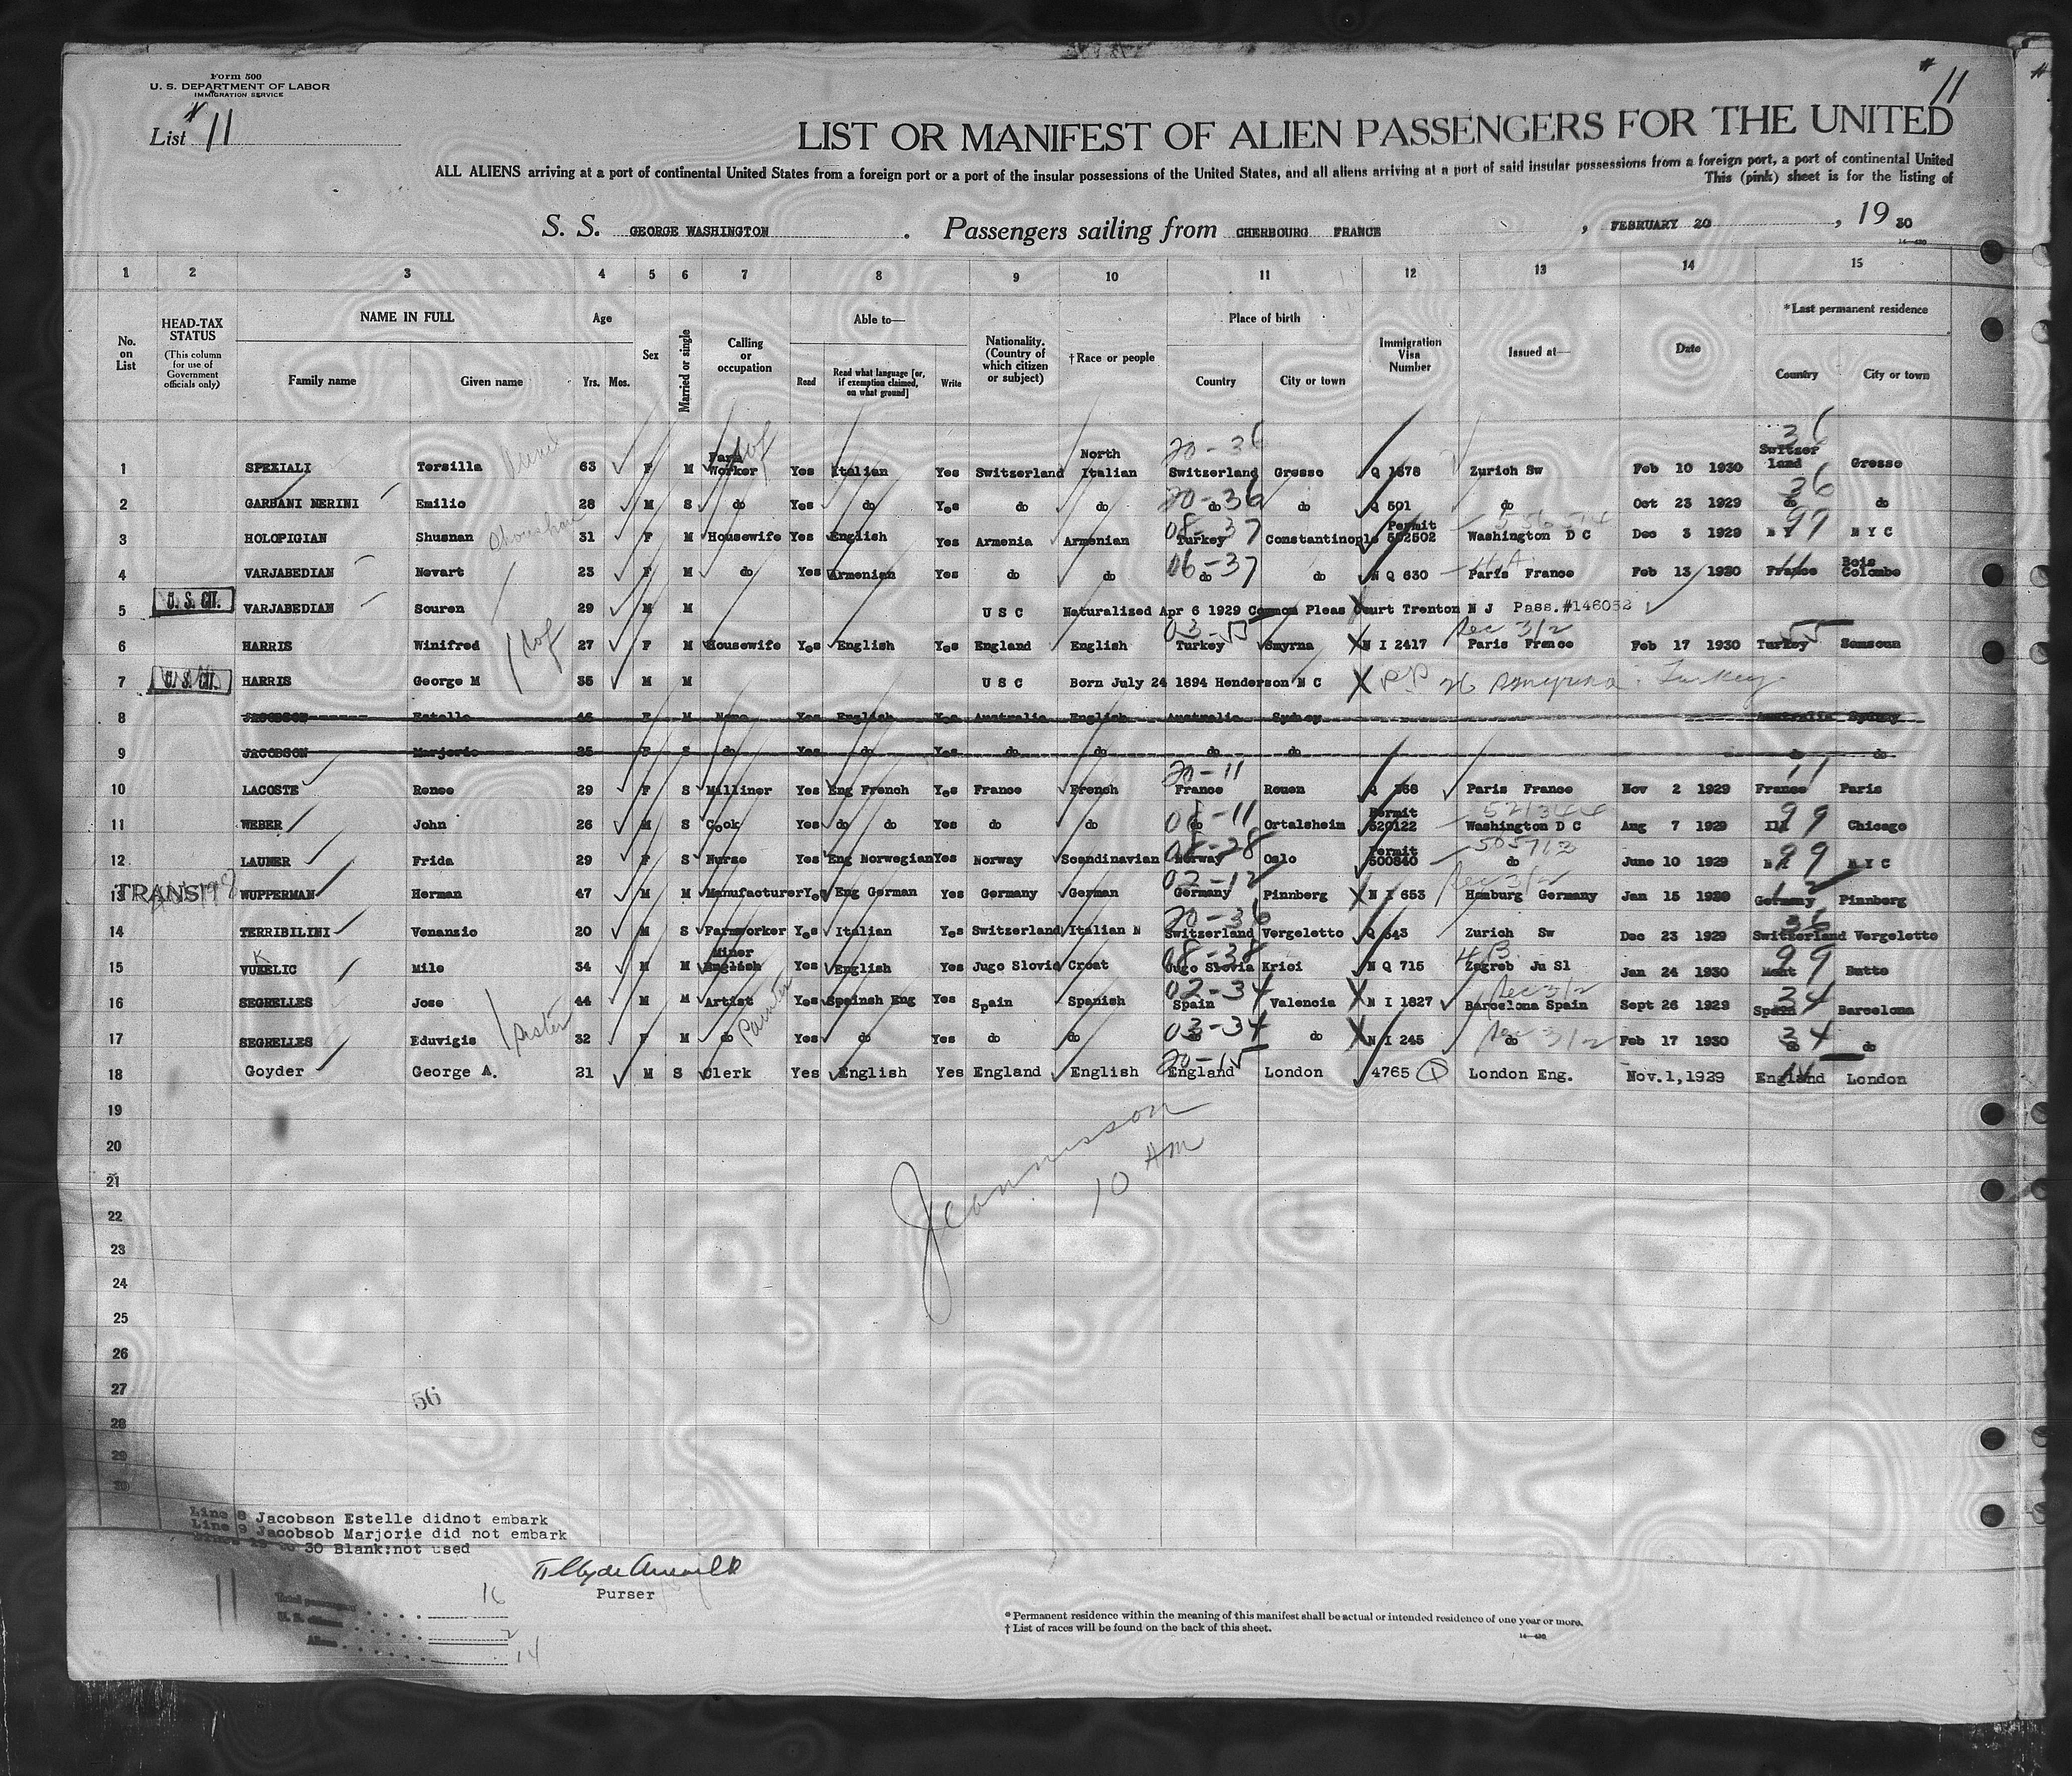 Form 500
U. S. DEPARTMENT OF LABOR
IMMIGRATION SERVICE
List 11
# 11
LIST OR MANIFEST OF ALIEN PASSENGERS FOR THE UNITED
ALL ALIENS arriving at a port of continental United States from a foreign port or a port of the insular possessions of the United States, and all aliens arriving at a port of said insular possessions from a foreign port, a port of continental United
This (pink) sheet is for the listing of
S. S. GEORGE WASHINGTON. Passengers sailing from CHERBOURG FRANCE, FEBRUARY 20, 19 30
14-430
1 2 3 4 5 6 7 8 9 10 11 12 13 14 15
No. on List
HEAD-TAX STATUS (This column for use of Government officials only)
NAME IN FULL Family name Given name
Age Yrs. Mos.
Sex
Married or single
Calling or occupation
Able to— Read Read what language [or, if exemption claimed, on what ground] Write
Nationality. (Country of which citizen or subject)
†Race or people
Place of birth Country City or town
Immigration Visa Number
Issued at—
Date
*Last permanent residence Country City or town
1 SPEZIALI Tersilla 63 F M Farm Worker Yes Italian Yes Switzerland North Italian 20-36 Switzerland Gresso Q 1678 Zurich Sw Feb 10 1930 36 Switzer land Gresso
2 GARBANI NERINI Emilio 28 M S do Yes do Yes do do 20-36 do do Q 501 do Oct 23 1929 36 do do
3 HOLOPIGIAN Shusnan 31 F M Housewife Yes English Yes Armenia Armenian 08-37 Turkey Constantinople Permit 592502 Washington D C Dec 3 1929 99 N Y N Y C
4 VARJABEDIAN Nevart 23 F M do Yes Armenian Yes do do 06-37 do do N Q 630 Paris France Feb 13 1930 11 France Bois Colombe
5 U. S. CIT. VARJABEDIAN Souren 29 M M U S C Naturalized Apr 6 1929 Common Pleas Court Trenton N J Pass.#146032
6 HARRIS Winifred 27 F M Housewife Yes English Yes England English 03-55 Turkey Smyrna N I 2417 Sec 3/2 Paris France Feb 17 1930 55 Turkey Samsoun
7 U. S. CIT. HARRIS George M 35 M M U S C Born July 24 1894 Henderson N C PP 26 Smyrna Turkey
8 JACOBSON Estelle 46 F M None Yes English Yes Australia English Australia Sydney Australia Sydney
9 JACOBSON Marjorie 25 F S do Yes do Yes do do do do do do
10 LACOSTE Renee 29 F S Milliner Yes Eng French Yes France French 20-11 France Rouen Q 368 Paris France Nov 2 1929 11 France Paris
11 WEBER John 26 M S Cook Yes do do Yes do do 08-11 do Ortalsheim Permit 520122 Washington D C Aug 7 1929 99 Ill Chicago
12 LAUNER Frida 29 F S Nurse Yes Eng Norwegian Yes Norway Scandinavian 08-28 Norway Oslo Permit 500840 do June 10 1929 99 N Y N Y C
TRANSIT
13 WUPPERMAN Herman 47 M M Manufacturer Yes Eng German Yes Germany German 02-12 Germany Pinnberg N I 653 Sec 3/2 Hamburg Germany Jan 15 1930 12 Germany Pinnberg
14 TERRIBILINI Venanzio 20 M S Farmworker Yes Italian Yes Switzerland Italian N 20-36 Switzerland Vergeletto Q 643 Zurich Sw Dec 23 1929 36 Switzerland Vergeletto
15 VUKELIC Mile 34 M M Miner English Yes English Yes Jugo Slovia Croat 08-38 Jugo Slovia Krioi N Q 715 4 B Zagreb Ju Sl Jan 24 1930 99 Mont Butte
16 SEGRELLES Jose 44 M M Artist Yes Spainsh Eng Yes Spain Spanish 02-34 Spain Valencia N I 1827 Sec 3/2 Barcelona Spain Sept 26 1929 34 Spain Barcelona
sister painter
17 SEGRELLES Eduvigis 32 F M do Yes do Yes do do 03-34 do do N I 245 Sec 3/2 do Feb 17 1930 34 do do
18 Goyder George A. 21 M S Clerk Yes English Yes England English 20-15 England London 4765 1 London Eng. Nov.1,1929 15 England London
19
20
21
22
23
24
25
26
27
28
29
30
Jeannisson
10 AM
56
Line 8 Jacobson Estelle didnot embark
Line 9 Jacobsob Marjorie did not embark
Lines 19 to 30 Blank:not used
Purser
11
Total passengers 16
U. S. citizens 2
Aliens 14
* Permanent residence within the meaning of this manifest shall be actual or intended residence of one year or more.
† List of races will be found on the back of this sheet.
14-430